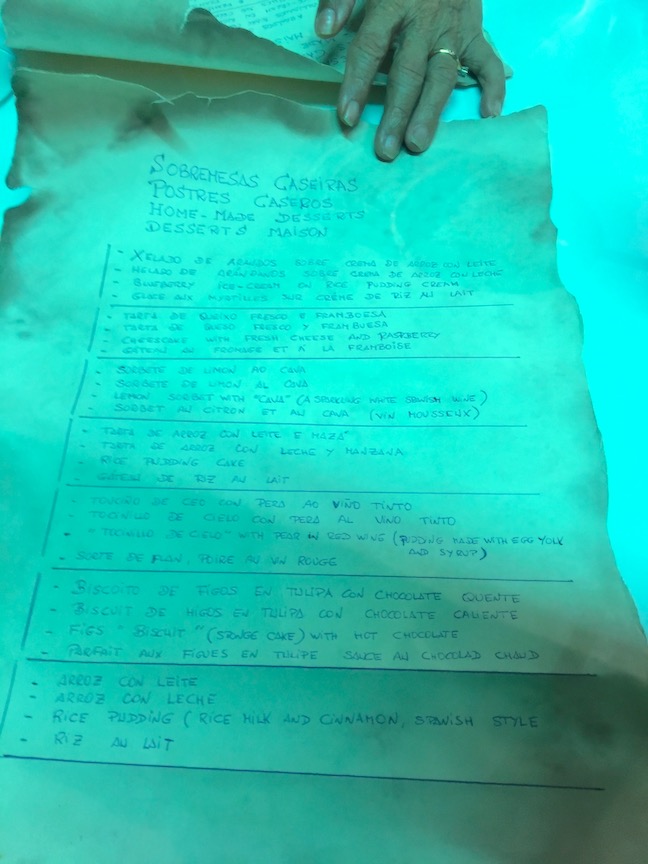 SOBREMESAS CASEIRAS
POSTRES CASEROS
HOME-MADE DESSERTS
DESSERTS MAISON
- XELADO DE ARANDOS SOBRE CREMA DE ARROZ CON LEITE
- HELADO DE ARÁNDANOS SOBRE CREMA DE ARROZ CON LECHE
- BLUEBERRY ICE-CREAM ON RICE PUDDING CREAM
- GLACE AUX MYRTILLES SUR CRÈME DE RIZ AU LAIT
- TARTA DE QUEIXO FRESCO E FRAMBOESA
- TARTA DE QUESO FRESCO Y FRAMBUESA
- CHEESECAKE WITH FRESH CHEESE AND RASPBERRY
- GÂTEAU AU FROMAGE ET À LA FRAMBOISE
- SORBETE DE LIMON AO CAVA
- SORBETE DE LIMON AL CAVA
- LEMON SORBET WITH "CAVA" (A SPARKLING WHITE SPANISH WINE)
- SORBET AU CITRON ET AU CAVA (VIN MOUSSEUX)
- TARTA DE ARROZ CON LEITE E MAZÁ
- TARTA DE ARROZ CON LECHE Y MANZANA
- RICE PUDDING CAKE
- GÂTEAU DE RIZ AU LAIT
- TOUCIÑO DE CEO CON PERA AO VIÑO TINTO
- TOCINILLO DE CIELO CON PERA AL VINO TINTO
- "TOCINILLO DE CIELO" WITH PEAR IN RED WINE (PUDDING MADE WITH EGG YOLK
AND SYRUP)
- SORTE DE FLAN, POIRE AU VIN ROUGE
- BISCOITO DE FIGOS EN TULIPA CON CHOCOLATE QUENTE
- BISCUIT DE HIGOS EN TULIPA CON CHOCOLATE CALIENTE
- FIGS "BISCUIT" (SPONGE CAKE) WITH HOT CHOCOLATE
- PARFAIT AUX FIGUES EN TULIPE SAUCE AU CHOCOLAD CHAUD
- ARROZ CON LEITE
- ARROZ CON LECHE
- RICE PUDDING (RICE MILK AND CINNAMON, SPANISH STYLE
- RIZ AU LAIT